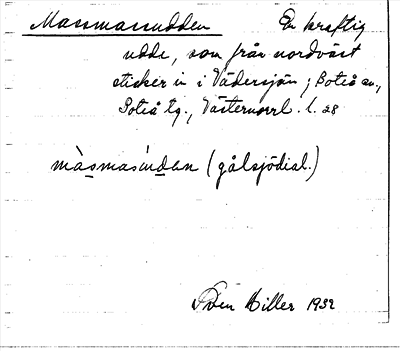 Massmassudden En kraftig
udde, som från nordväst
sticker in i Vädersjön; Boteå sn.,
Boteå tg., Västernorrl. l. 28
màsmasúdan (gålsjödial.)
Sven Hiller 1932